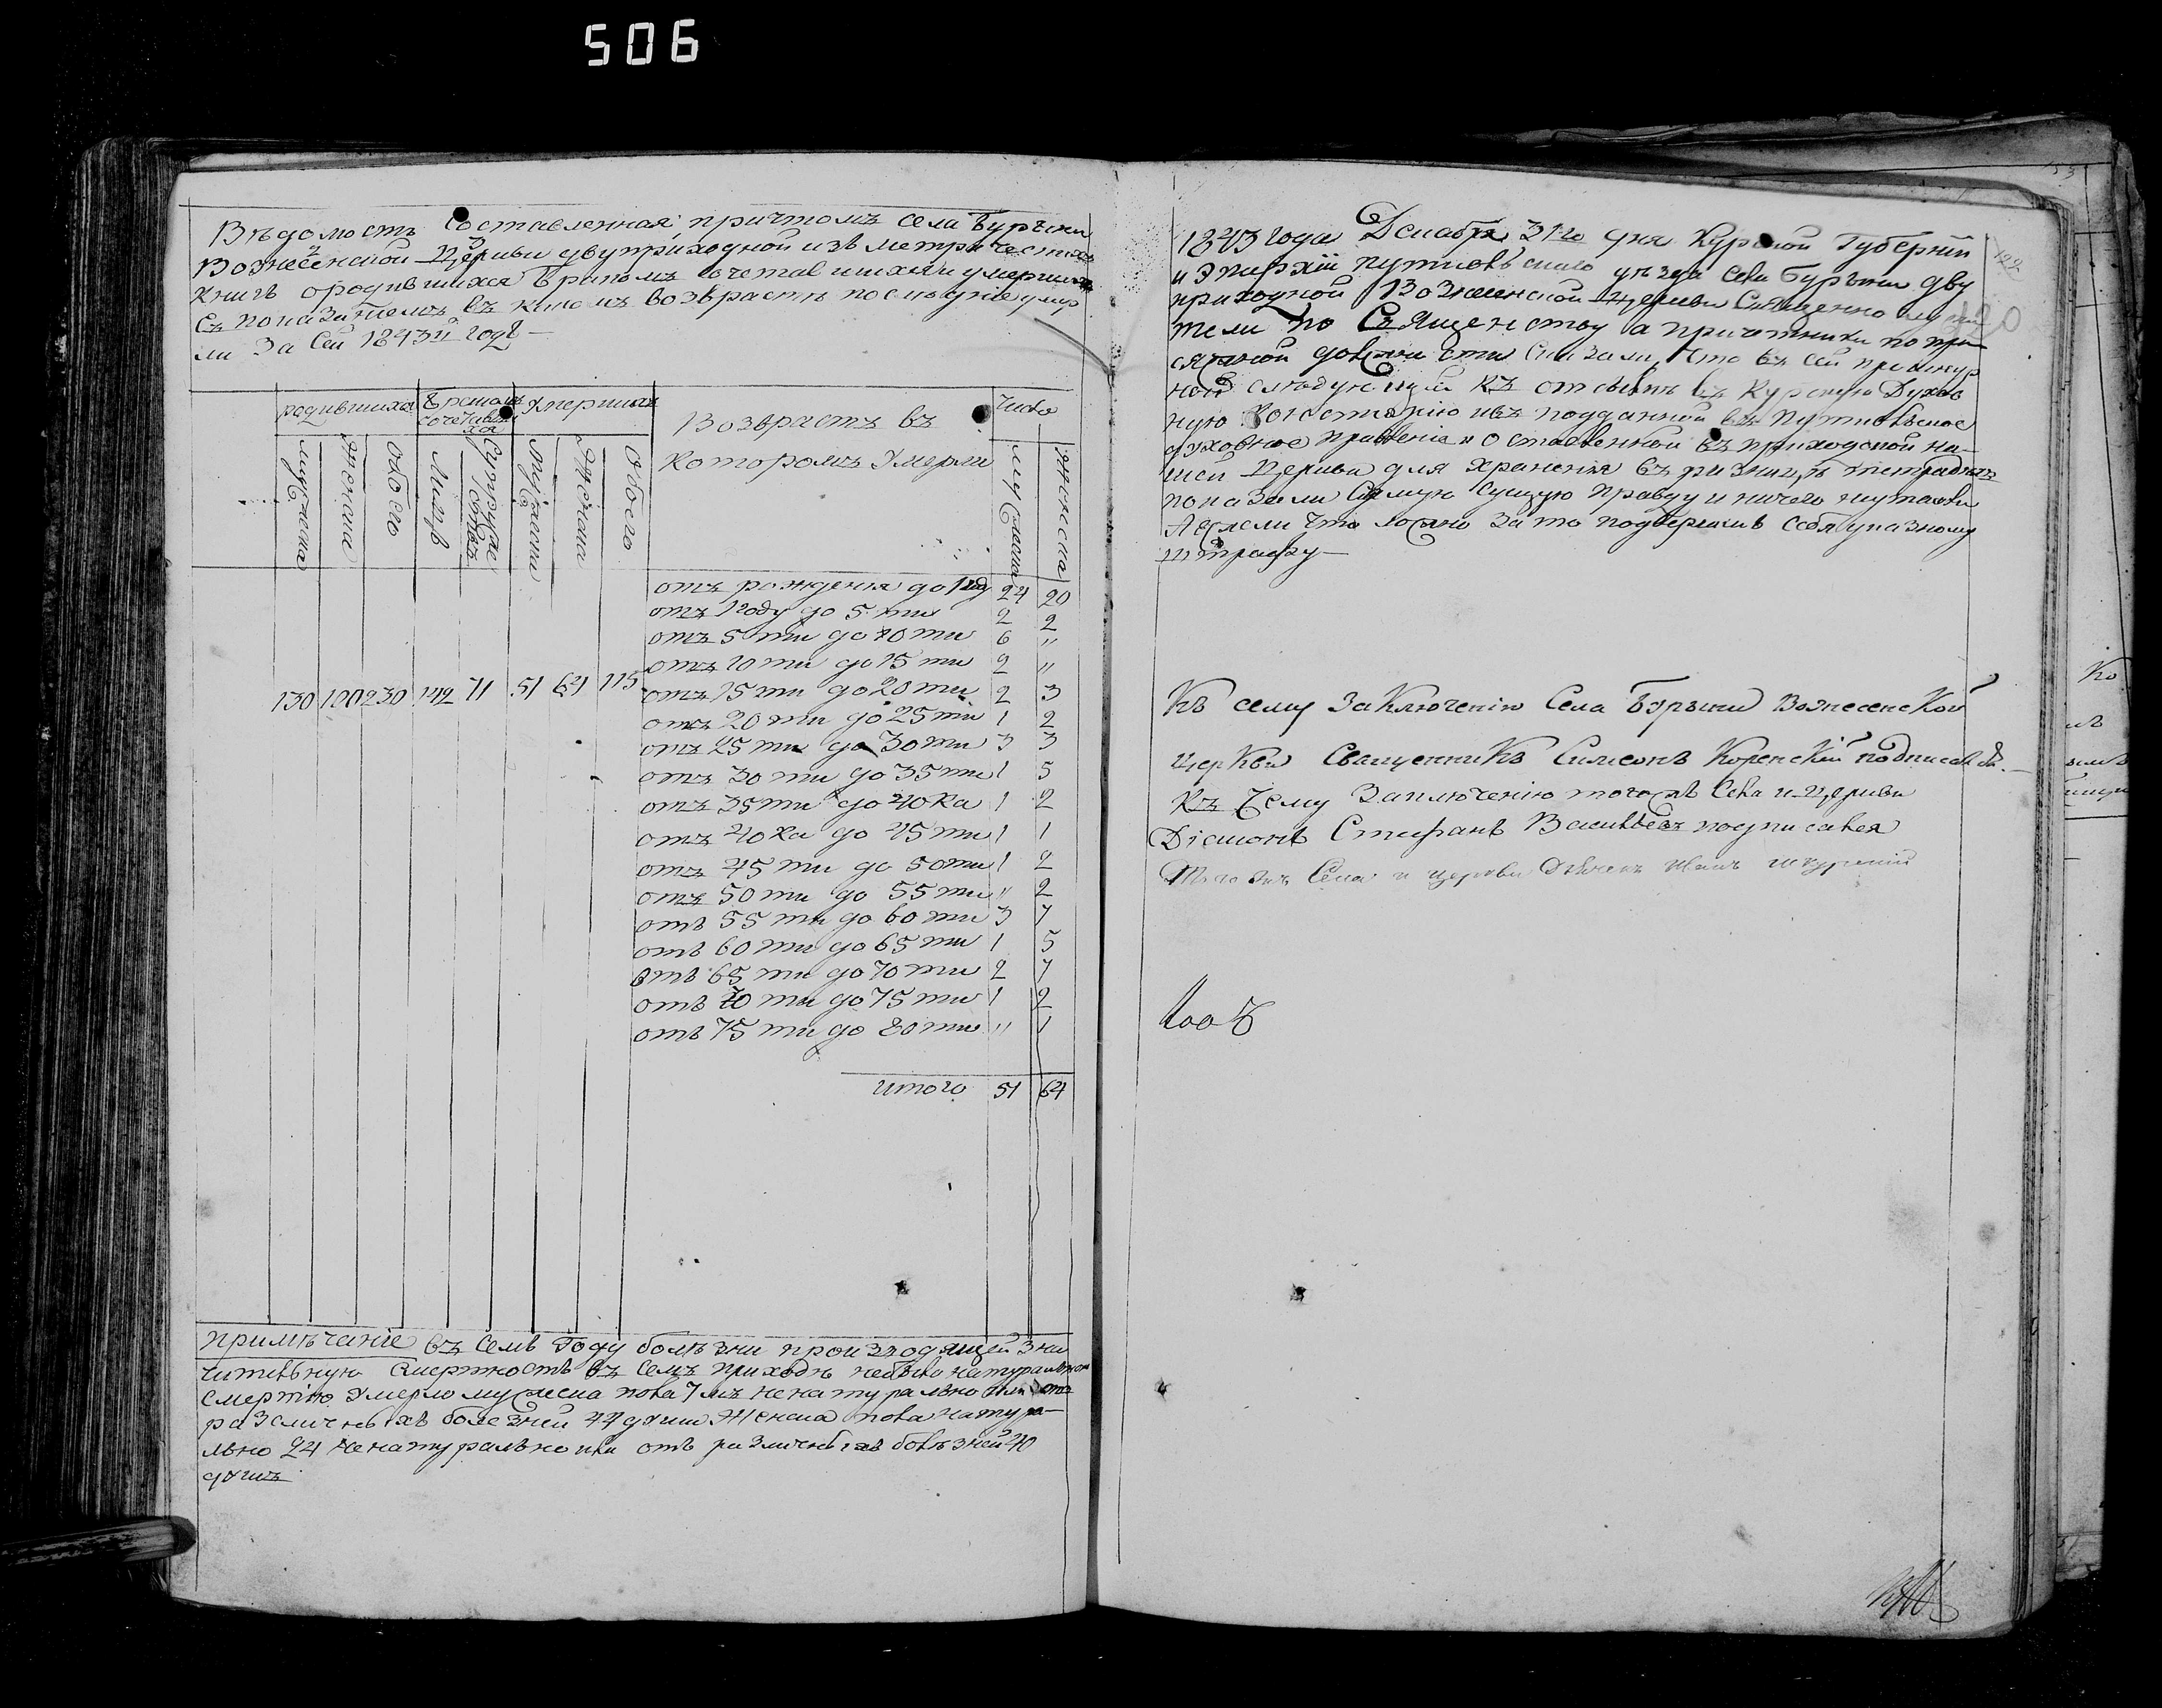 506
Ведомость Составленная причтомъ села Бурыни
Вознесенской Церкви двуприходной изъ метрическихъ
книгъ ородившихся бракомъ сочетавшихся и умершихъ
Съ показаниемъ въ какомъ возврасте последние умир
ли За Сей 1843й годъ —
родившихся
бракомъ сочетавших ся
Умершихъ
Возврастъ въ
которомъ Умерли
Число
мужеска
женска
обоего
Лицъ
Супруже ствъ
мужеска
Женска
Обоего
мужеска
Женска
отъ рождения до 1 году 24 20
отъ 1году до 5 ти 2 2
отъ 5 ти до 10 ти 6 "
отъ 10 ти до 15 ти 2 "
130 100 230 142 71 51 64 115
отъ 15 ти до 20 ти 2 3
отъ 20 ти до 25 ти 1 2
отъ 25 ти до 30 ти 3 3
отъ 30 ти до 35 ти 1 5
отъ 35 ти до 40 ка 1 2
отъ 40 ка до 45 ти 1 1
отъ 45 ти до 50 ти 1 2
отъ 50 ти до 55 ти " 2
отъ 55 ти до 60 ти 3 7
отъ 60 ти до 65 ти 1 5
отъ 65 ти до 70 ти 2 7
отъ 70 ти до 75 ти 1 2
отъ 75 ти до 80 ти " 1
итого 51 64
примѣчание въ семъ Году болѣзни произходящей зна
чительную Смертность въ семъ приходѣ небыло натуральною
смертию Умерло мужеска пола 7мъ ненатурально или отъ
различныхъ болезней 44 души Женска пола натура-
льно 24 ненатурально или отъ различныхъ болѣзней 40
душъ
1843 года Декабря 31го дня Курской Губернии
и Эпархии путивльского уѣзда села Бурыни дву
приходной Вознесенской Церкви Священнослужи
тели по Священству а причетники по при
сяжной должности Сказали, что въ сей
следующей къ отсылкѣ въ Курскую Духов
ную Консисторию изъ подданной въ Путивльское
духовное правление и оставленной въ приходской на-
шей Церкви для хранения въ ризницѣ тетрадяхъ
показали Самую Сущую правду и ничего неутаили
А ежели что ложно за то подвергаемъ себя указному
штрафу —
122
120
Къ сему Заключению Села Бурыни Вознесенской
Церкви СвященникЪ СимеонЪ Коренский подписался. —
Къ сему Заключению тогожъ Села и Церкви
Диаконъ Стефанъ Васильевъ подписался
Тогожъ Села и церкви Дьячекъ Иванъ
153
Ко